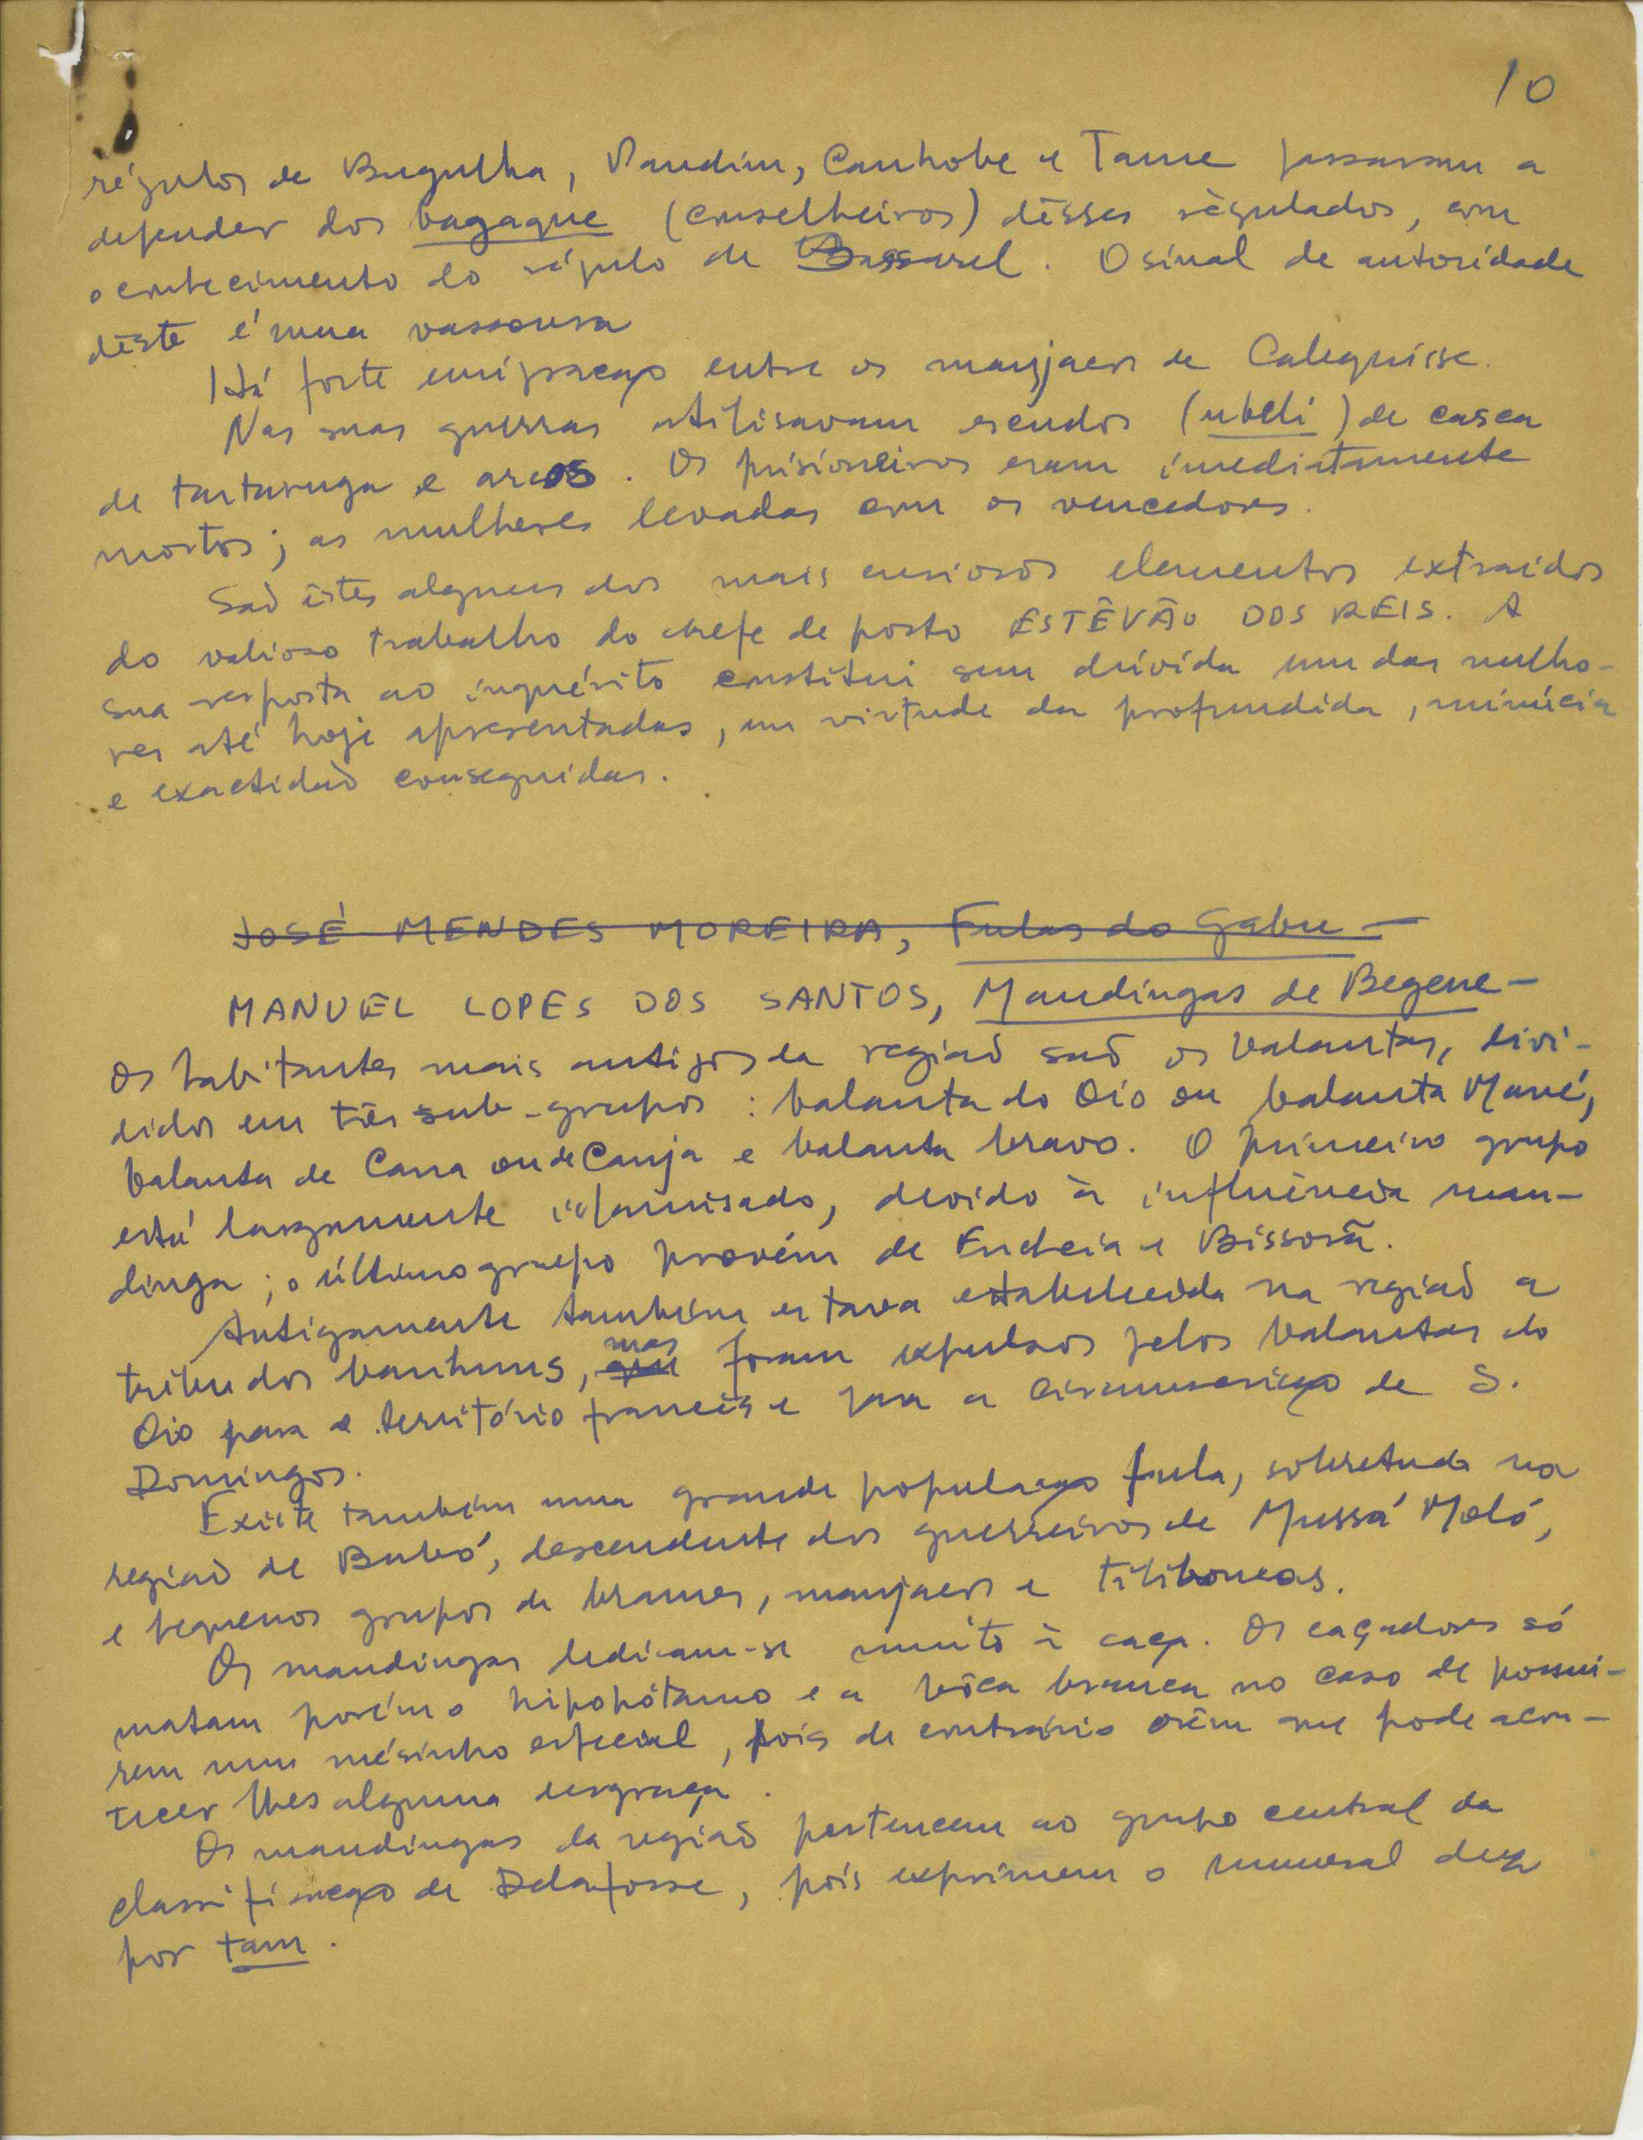 10
régulos de Bugulha, Pandim, Canhobe e Tame passaram a
depender dos bagaque (conselheiros) dêsses régulados, com
o conhecimento do régulo de Bassarel. O sinal de autoridade
dêste é uma vassoura
Há forte emigração entre os manjacos de Calequisse.
Nas suas guerras utilisavam escudos (ubeli) de casca
de tartaruga e arcos. Os prisioneiros eram imediatamente
mortos; as mulheres levadas com os vencedores.
São êstes alguns dos mais curiosos elementos extraídos
do valioso trabalho do chefe de posto ESTÊVÃO DOS REIS. A
sua resposta ao inquérito constitui sem dúvida um das milho-
res até hoje apresentadas, em virtude da profundida, minúcia
e exactidão conseguidas.
JOSÉ MENDES MOREIRA, Fulas do Gabu —
MANUEL LOPES DOS SANTOS, Mandingas de Begene —
Os habitantes mais antigos da região são os balantas, divi-
didos em três sub-grupos: balanta do Oio ou balanta Mané,
balanta de Cana ou de Canja e balanta bravo. O primeiro grupo
está largamente islamisado, devido à influência man-
dinga; o último grupo provém de Encheia e Bissorã.
Antigamente também estava estabelecida na região a
tribu dos banhuns, que mas foram expulsos pelos balantas do
Oio para o território francês e para a circunscrição de S.
Domingos.
Existe também uma grande população fula, sobretudo na
região de Binbó, descendente dos guerreiros de Mussá Moló,
e pequenos grupos de brames, manjacos e tiliboncas.
Os mandingas dedicam-se muito à caça. Os caçadores só
matam porém o hipopótamo e a bôca branca no caso de possui-
rem um mésinho especial, pois de contrário crêm que pode acon-
tecer lhes alguma desgraça.
Os mandingas da região pertencem ao grupo central da
classificação de Delafosse, pois exprimem o numeral dez
por tam.